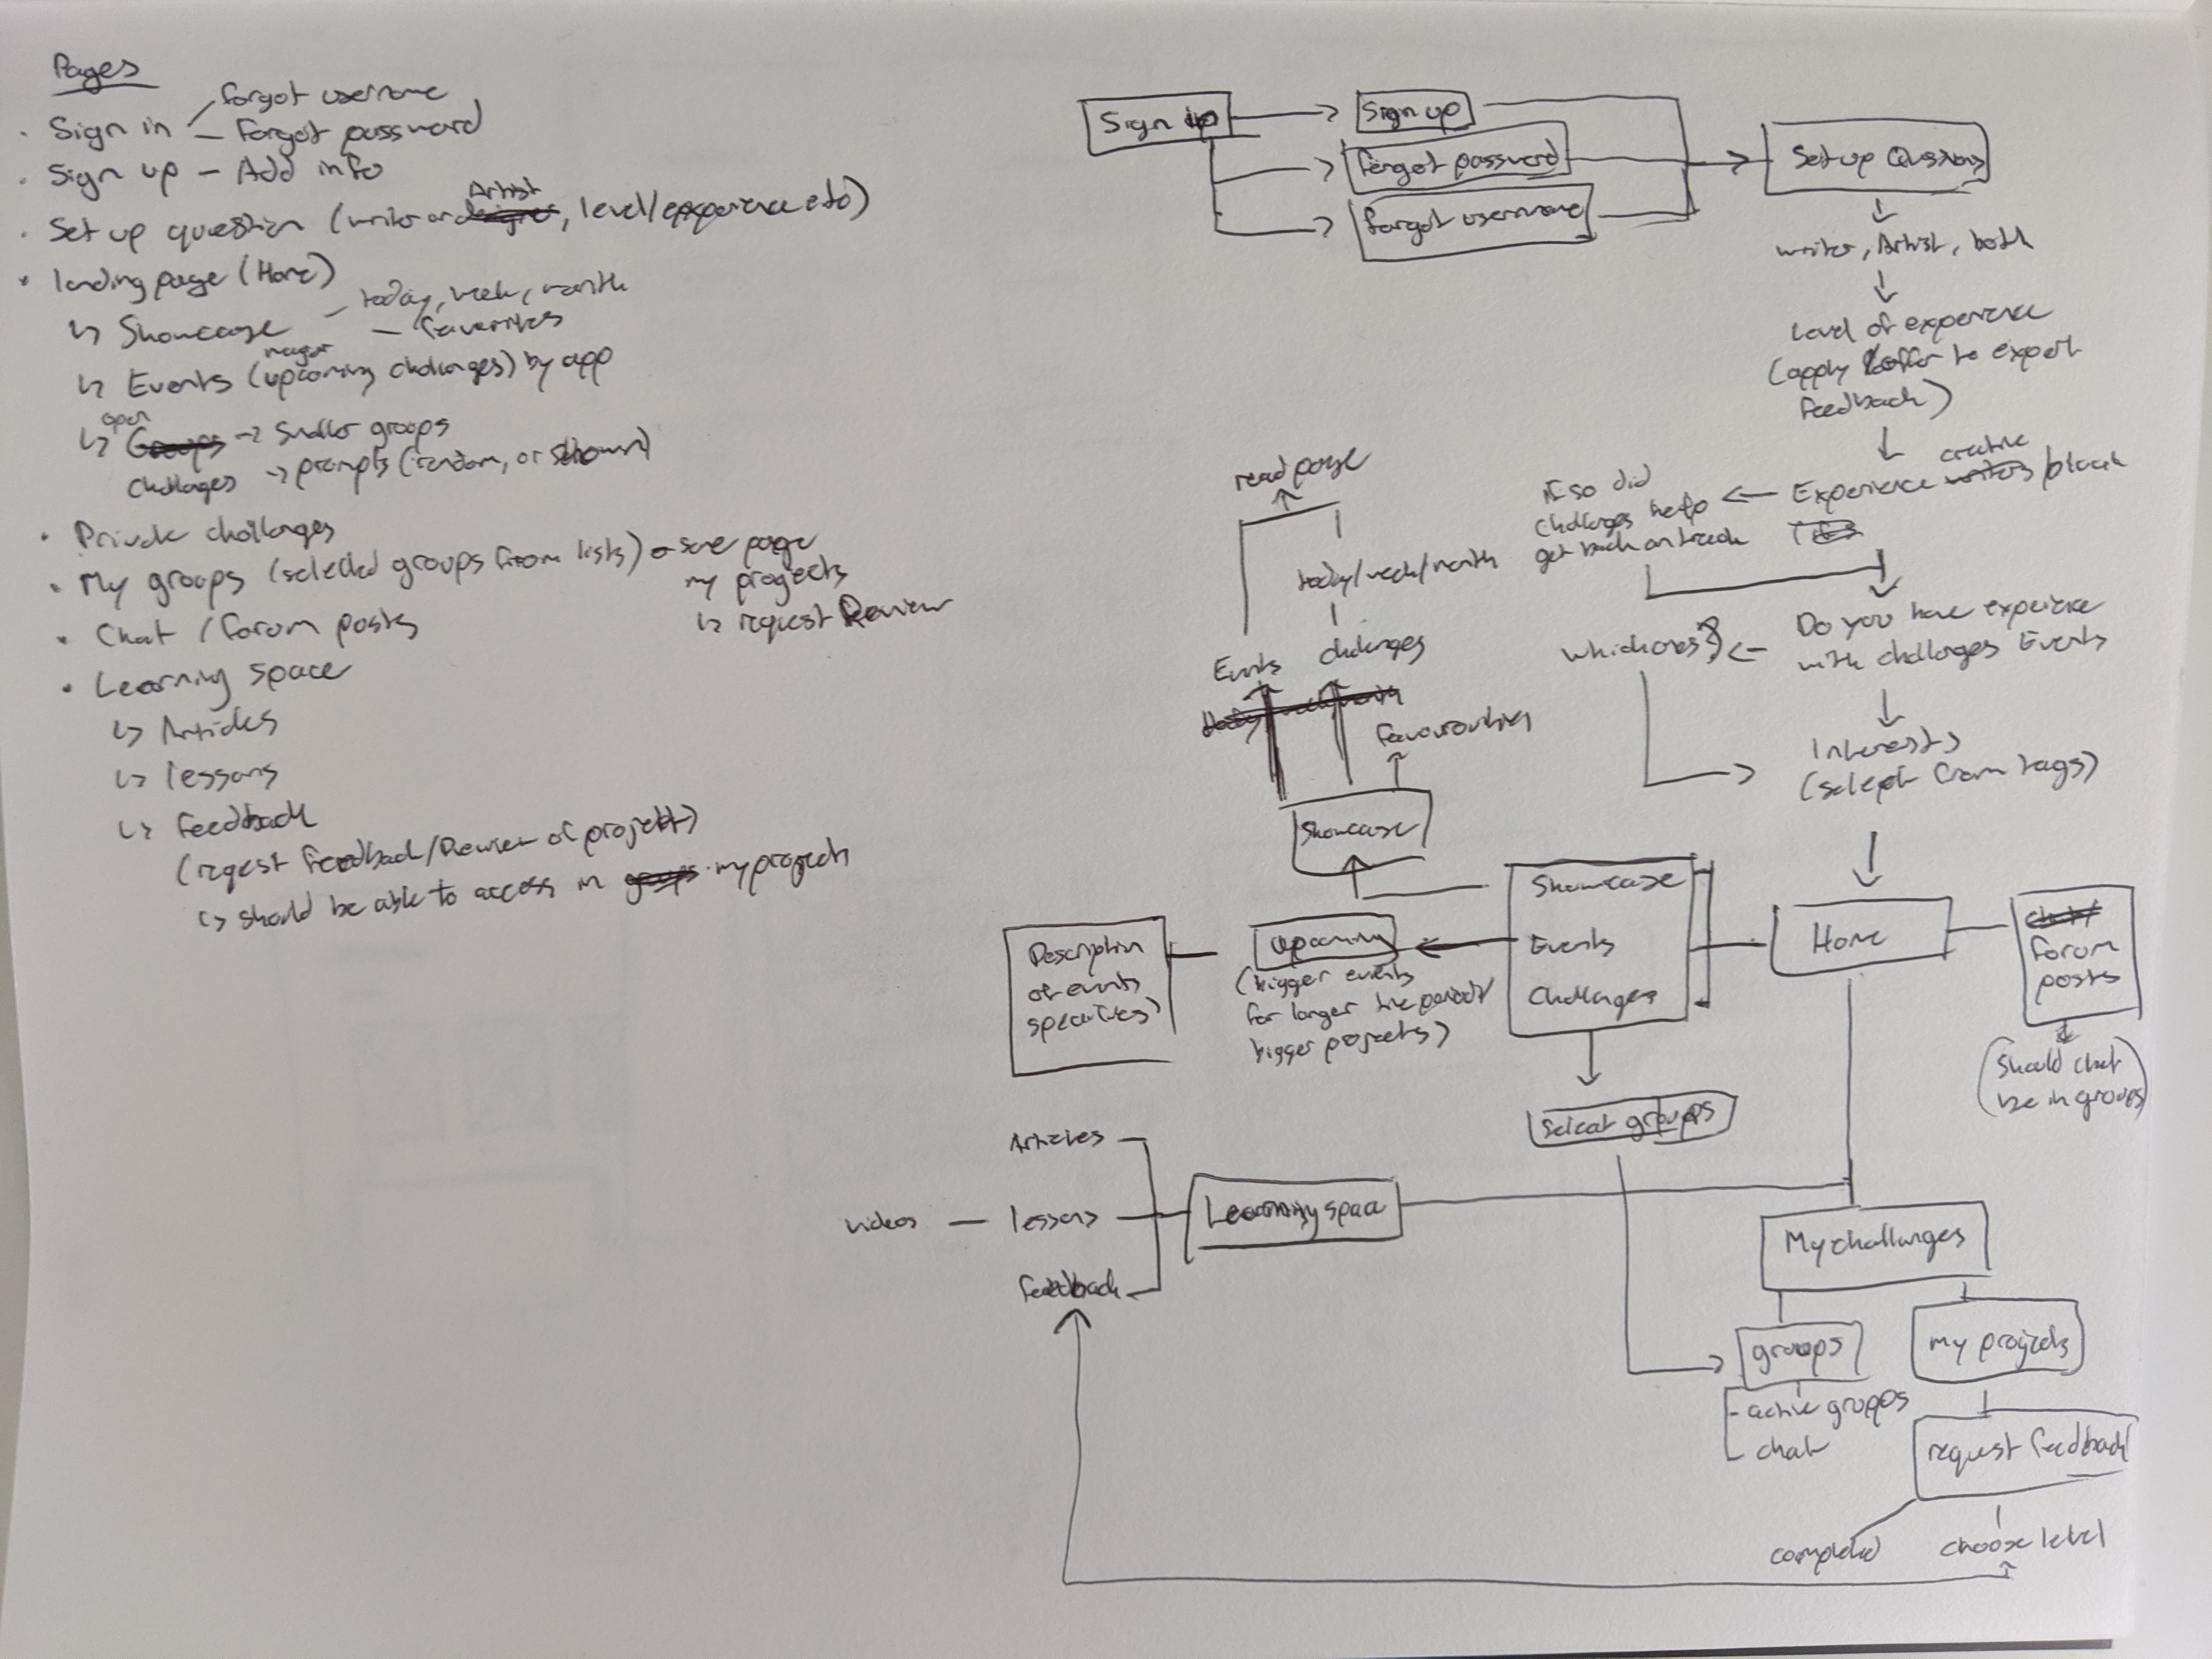 Pages
forgot username
· Sign in — Forgot password
· Sign up – Add info
Artist
· Set up question (writer or designer, level/experience etc)
· landing page (Home)
↳ Showcase – today, week, month
– favorites
major
↳ Events (upcoming challenges) by app
open
↳ Groups → Smaller groups
Challenges → prompts (random, or shown)
· Private challenges
· My groups (selected groups from lists) – same page
my projects
↳ request Review
· Chat / forum posts
· Learning space
↳ Articles
↳ lessons
↳ feedback
(reqest feedback/Review of projekt)
↳ should be able to access in groups my projects
Sign up
Sign up
forgot password
forgot username
Set up Qussions
writer, Artist, both
Level of experience
(apply & offer to expert
feedback)
creative
Experience writers block
If so did
challenges help
get back on track
Do you have experience
with challenges Events
Which ones?
Interests
(select from tags)
read page
today/week/month
Events
challenges
today/week/month
favourites
Showcase
Showcase
Events
Challenges
Home
chat/
forum
posts
(Should chat
be in groups)
Upcoming
(bigger events
for longer time period/
bigger projects)
Description
of events
specifics)
Select groups
Articles
videos – lessons
feedback
Learning space
My challanges
groups
- active groups
chat
my projects
request feedback
completed
choose level